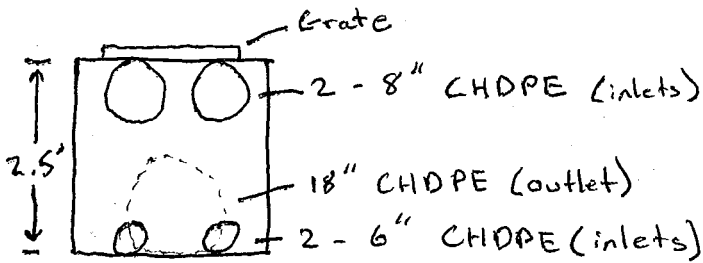 Grate
2 - 8" CHDPE (inlets)
2.5'
18" CHDPE (outlet)
2 - 6" CHDPE (inlets)